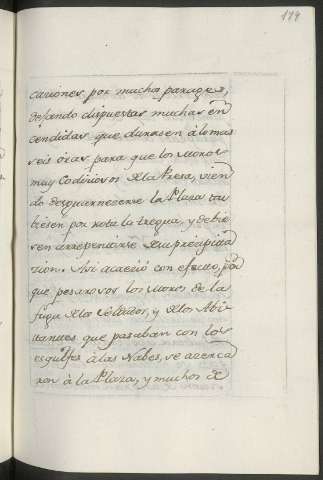 179
caziones por mucho parages,
dejando dispuestas muchas en
cendidas que durasen álo mas
seis óras para que los Moros
muy Codiciosos dela Presa, vien
do desguarnecerse la Plaza tu
biesen por rota la tregua, y debie
sen arrepentirse desu precipita
zion. Asi acaeció con efecto, por
que pesarosos los Moros de la
fuga delos Soldados, y delos Abi
tantes que pasaban con los
esquifes álas Nabes, se acerca
ron á la Plaza, y muchos de